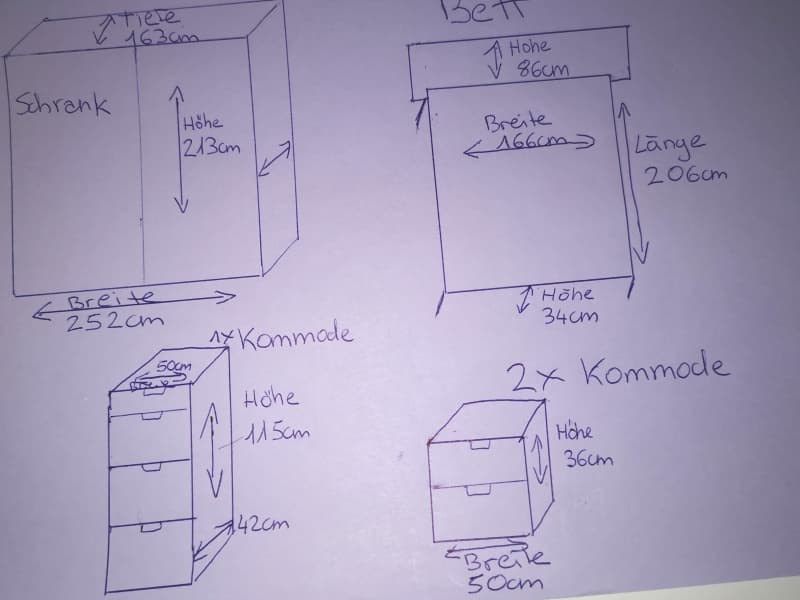 Tiefe
163cm
Schrank
Höhe
213cm
Breite
252cm
Bett
Höhe
86cm
Breite
166cm
Länge
206cm
Höhe
34cm
1x Kommode
50cm
Höhe
115cm
42cm
2x Kommode
Höhe
36cm
Breite
50cm